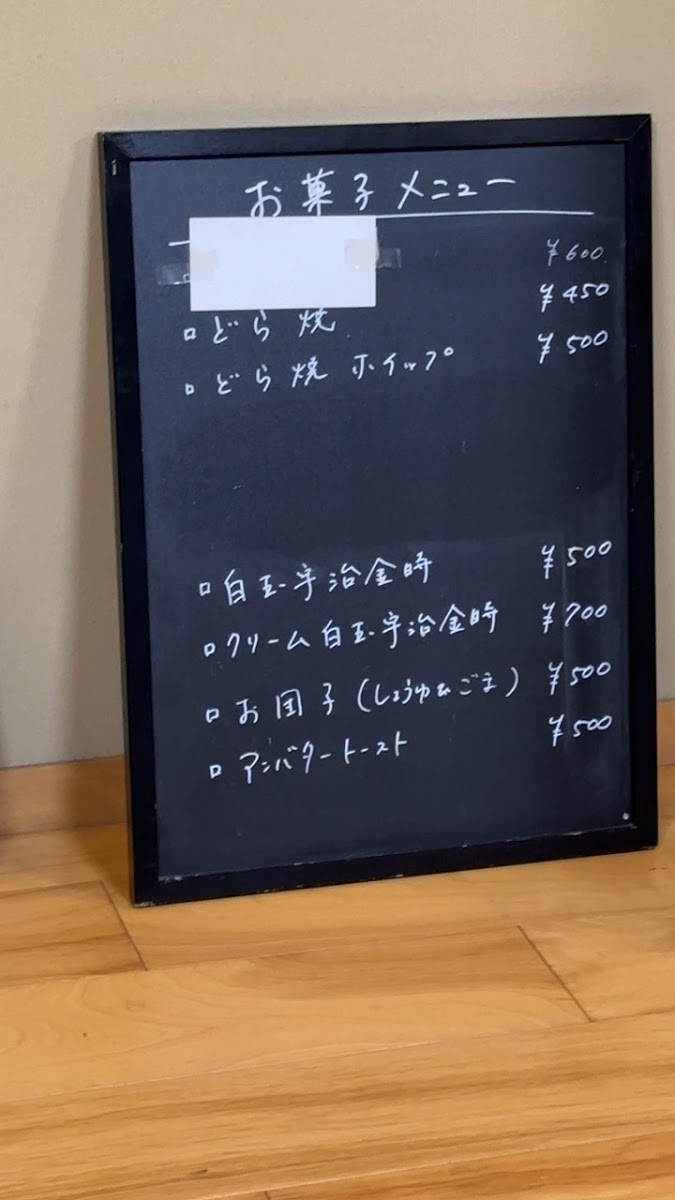 お菓子メニュー
¥600
□どら焼 ¥450
□どら焼 ホイップ ¥500
□白玉宇治金時 ¥500
□クリーム白玉宇治金時 ¥700
□お団子(しょうゆ&ごま) ¥500
□アンバタートースト ¥500